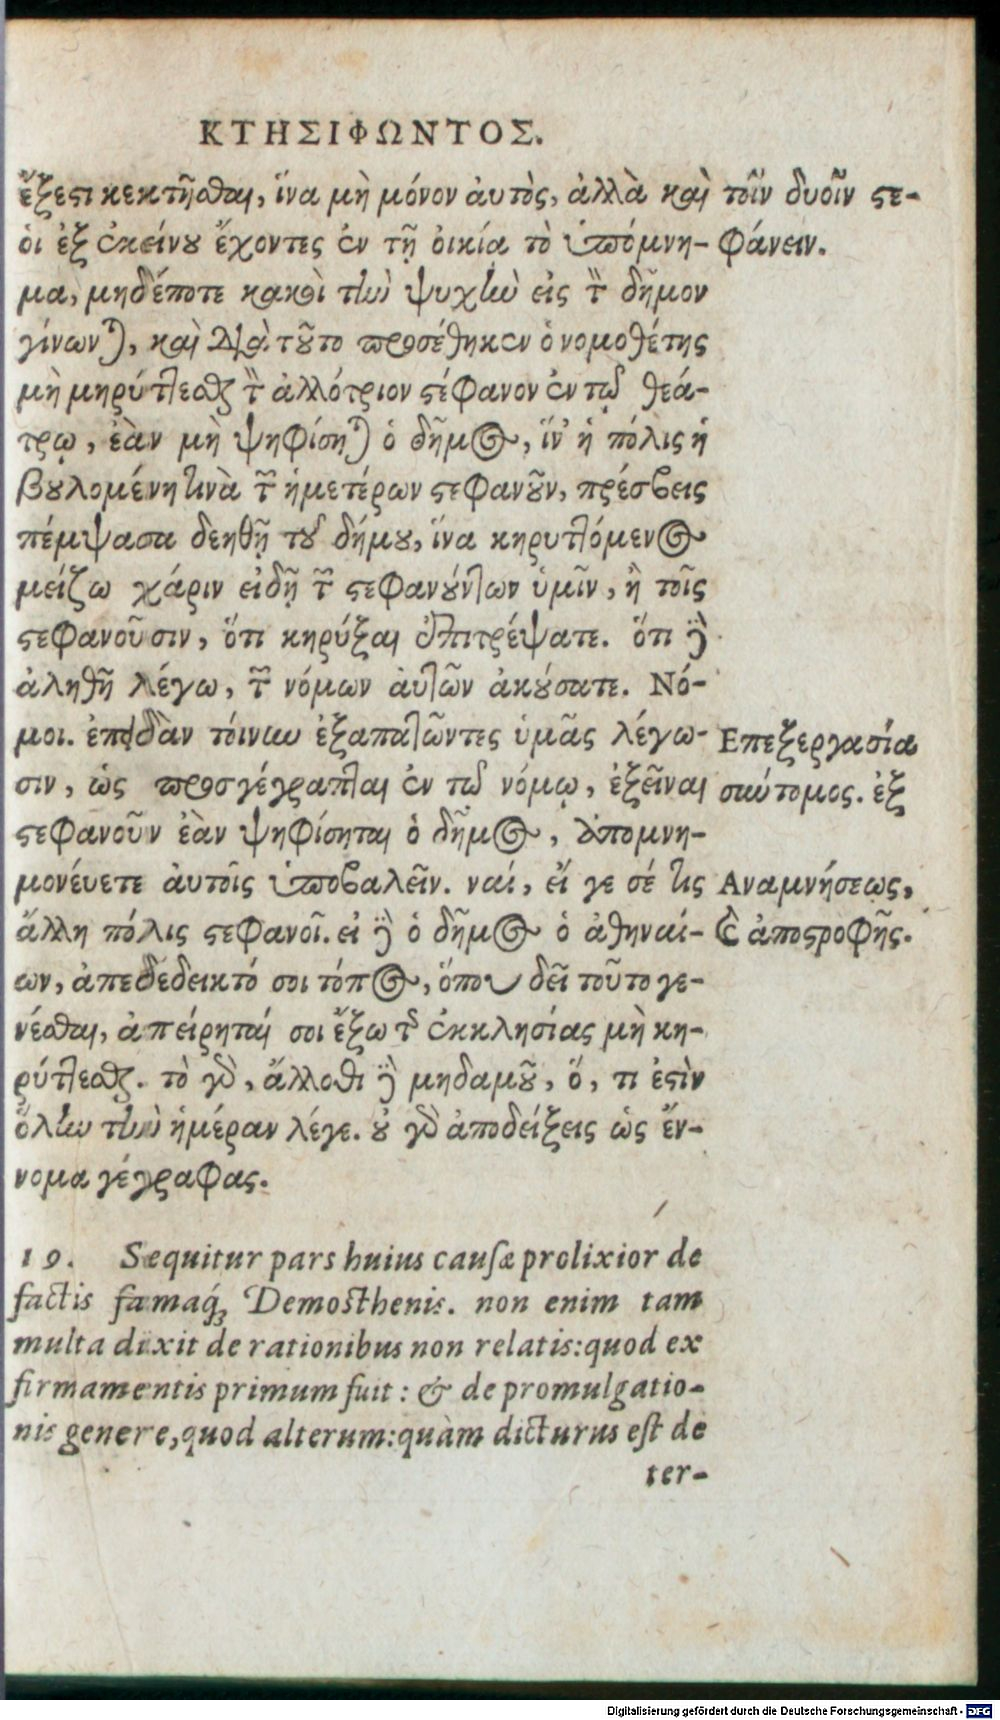 ΚΤΗΣΙΦΩΝΤΟΣ.
ἔξεστι κεκτῆσθαι, ἵνα μὴ μόνον ἀυτὸς, ἀλλὰ καὶ
ὁι ἐξ ἐκείνου ἔχοντες ἐν τῇ ὀικίᾳ τὸ ὑπόμνη-
μα, μηδέποτε κακοὶ τὴν ψυχὴν εἰς τὸν δῆμον
γίνωνται, καὶ διὰ τοῦτο προσέθηκεν ὁ νομοθέτης
μὴ κηρύττεσθαι τὸν ἀλλότριον στέφανον ἐν τῷ θεά-
τρῳ, ἐὰν μὴ ψηφίσηται ὁ δῆμος, ἵν' ἡ πόλις ἡ
βουλομένη τινὰ τῶν ἡμετέρων στεφανοῦν, πρέσβεις
πέμψασα δεηθῇ τοῦ δήμου, ἵνα κηρυττόμενος
μείζω χάριν εἰδῇ τῶν στεφανούντων ὑμῖν, ἢ τοῖς
στεφανοῦσιν, ὅτι κηρύξαι ἐπιτρέψατε. ὅτι δὲ
ἀληθῆ λέγω, τῶν νόμων ἀυτῶν ἀκούσατε. Νό-
μοι. ἐπειδὰν τόινυν ἐξαπατῶντες ὑμᾶς λέγω-
σιν, ὡς προσγέγραπται ἐν τῷ νόμῳ, ἐξεῖναι
στεφανοῦν ἐὰν ψηφίσηται ὁ δῆμος, ἀπομνη-
μονέυετε ἀυτοῖς ὑποβαλεῖν. ναί, εἴ γε σέ τις
ἄλλη πόλις στεφανοῖ. εἰ δὲ ὁ δῆμος ὁ ἀθηναί-
ων, ἀπεδέδεικτό σοι τόπος, ὅπου δεῖ τοῦτο γε-
νέσθαι, ἀπείρηταί σοι ἔξω τῆς ἐκκλησίας μὴ κη-
ρύττεσθαι. τὸ γὰρ, ἄλλοθι δὲ μηδαμοῦ, ὅ, τι ἐστὶν
ὅλην τὴν ἡμέραν λέγε. οὐ γὰρ ἀποδείξεις ὡς ἔν-
νομα γέγραφας.
τοῖν δυοῖν στε-
φάνειν.
Επεξεργασία
σύντομος. ἐξ
Αναμνήσεως,
καὶ ἀποστροφῆς.
19. Sequitur pars huius causæ prolixior de
factis famaq́ꝫ Demosthenis. non enim tam
multa dixit de rationibus non relatis: quod ex
firmamentis primum fuit: & de promulgatio-
nis genere, quod alterum: quàm dicturus est de
ter-
Digitalisierung gefördert durch die Deutsche Forschungsgemeinschaft - DFG